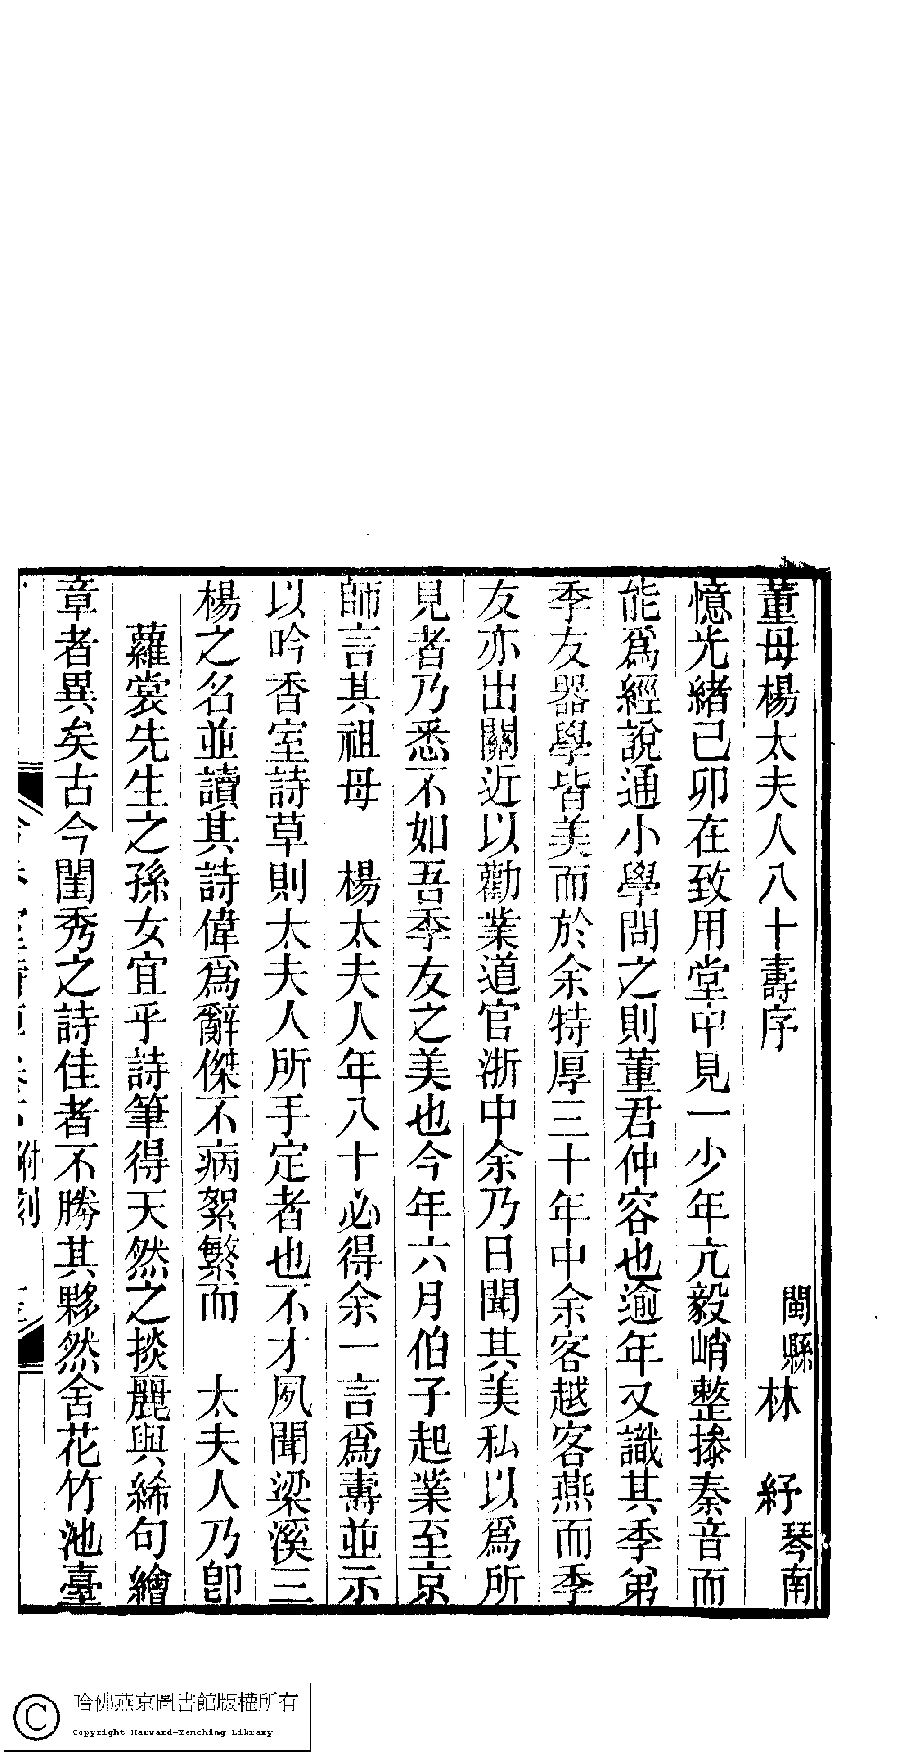 董母楊太夫人八十壽序
閩縣林 紓琴南
憶光緒己卯在致用堂中見一少年亢毅峭整摻秦音而
能爲經說通小學問之則董君仲容也逾年又識其季弟
季友器學皆美而於余特厚三十年中余客越客燕而季
友亦出關近以勸業道官浙中余乃日聞其美私以爲所
見者乃悉不如吾季友之美也今年六月伯子起業至京
師言其祖母 楊太夫人年八十必得余一言爲壽並示
以吟香室詩草則太夫人所手定者也不才夙聞梁溪三
楊之名並讀其詩偉爲辭傑不病絮繁而 太夫人乃卽
蘿裳先生之孫女宜乎詩筆得天然之掞麗與絺句繪
章者異矣古今閨秀之詩佳者不勝其夥然舍花竹池臺
附刻
哈佛燕京圖書館版權所有
Copyright Harvard-Yenching Library